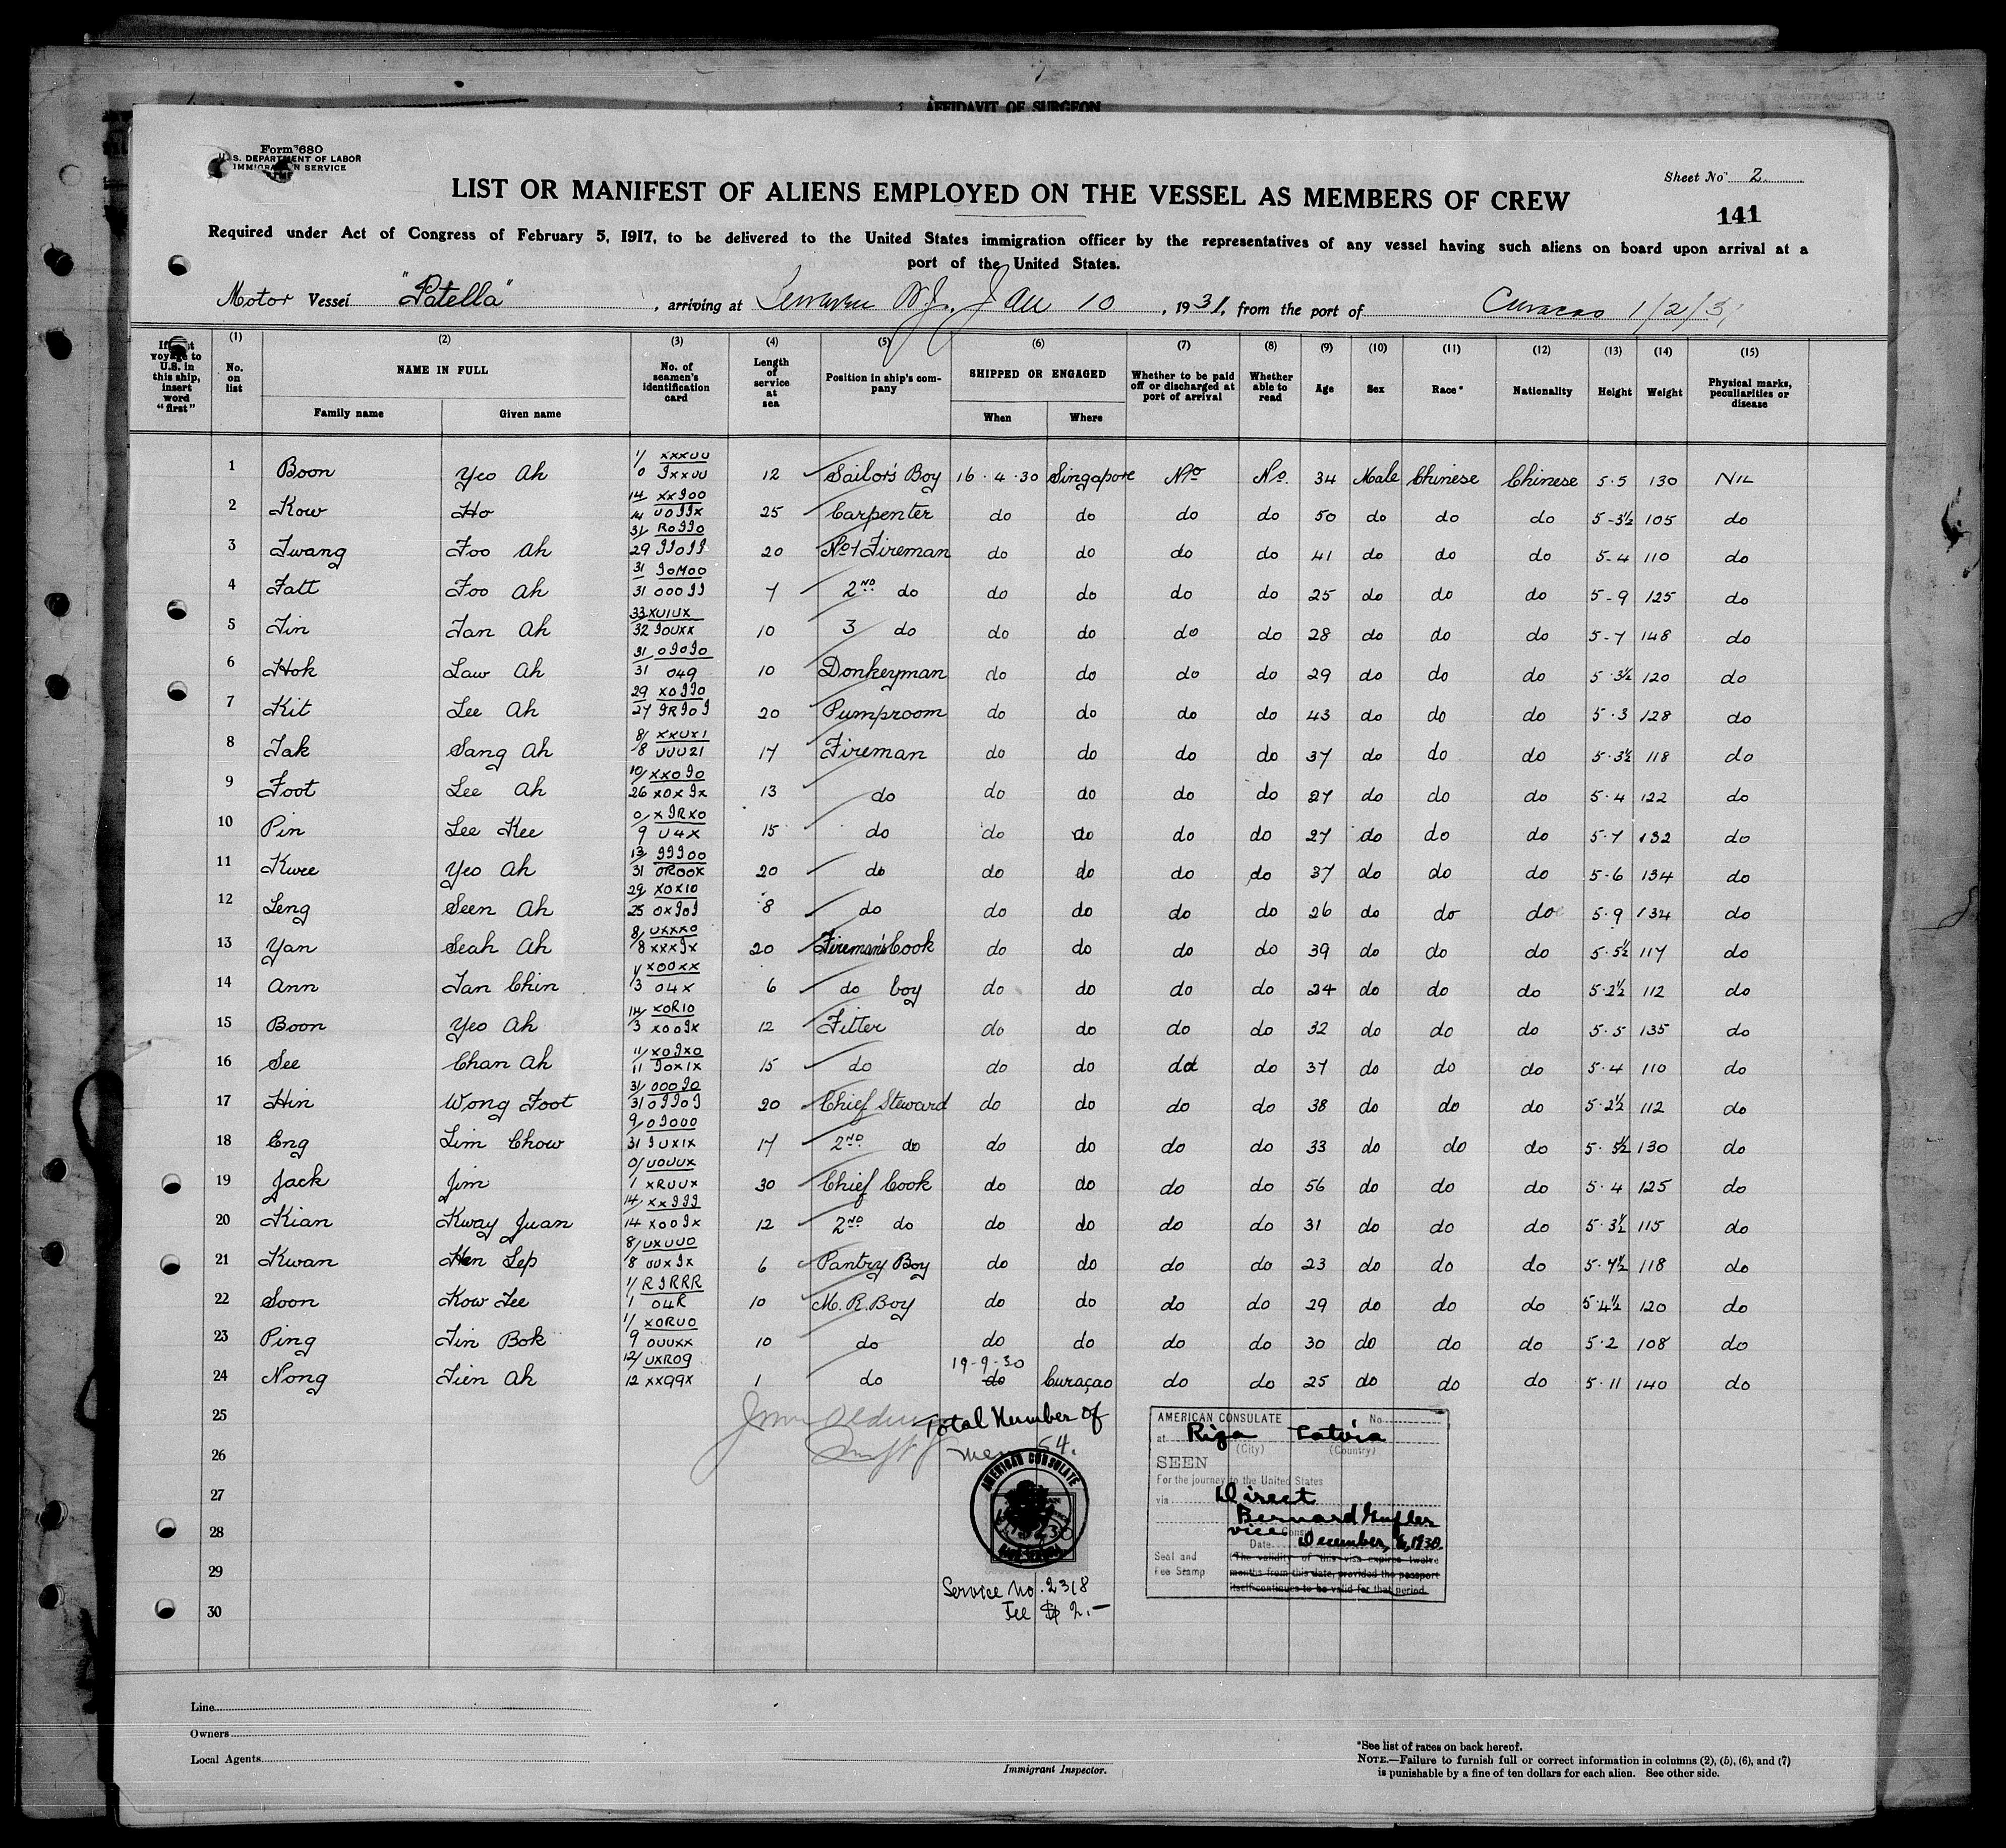 AFFIDAVIT OF SURGEON
Form 680
U.S. DEPARTMENT OF LABOR
IMMIGRATION SERVICE
Sheet No. 2
LIST OR MANIFEST OF ALIENS EMPLOYED ON THE VESSEL AS MEMBERS OF CREW
141
Required under Act of Congress of February 5, 1917, to be delivered to the United States immigration officer by the representatives of any vessel having such aliens on board upon arrival at a
port of the United States.
Motor Vessel "Patella", arriving at Sewaren N.J. Jan 10, 1931, from the port of Curacao 1/2/31
If first voyage to U.S. in this ship, insert word "first" (1) No. on list (2) NAME IN FULL Family name Given name (3) No. of seamen's identification card (4) Length of service at sea (5) Position in ship's company (6) SHIPPED OR ENGAGED When Where (7) Whether to be paid off or discharged at port of arrival (8) Whether able to read (9) Age (10) Sex (11) Race* (12) Nationality (13) Height (14) Weight (15) Physical marks, peculiarities or disease
1 Boon Yeo Ah 1/0 XXXUU 9XXUU 12 Sailor's Boy 16.4.30 Singapore No No. 34 Male Chinese Chinese 5.5 130 Nil
2 Kow Ho 14/14 XX900 U099X 25 Carpenter do do do do 50 do do do 5-3½ 105 do
3 Twang Foo Ah 31/29 R0990 99099 20 No 1 Fireman do do do do 41 do do do 5-4 110 do
4 Fatt Foo Ah 31/31 90M00 00099 7 2ND do do do do do 25 do do do 5-9 125 do
5 Tin Tan Ah 33/32 XU1UX 90UXX 10 3 do do do do do 28 do do do 5-7 148 do
6 Hok Law Ah 31/31 09090 049 10 Donkeyman do do do do 29 do do do 5.3½ 120 do
7 Kit Lee Ah 29/27 X0990 9R909 20 Pumproom do do do do 43 do do do 5.3 128 do
8 Tak Sang Ah 8/8 XXUX1 UUU21 17 Fireman do do do do 37 do do do 5.3½ 118 do
9 Foot Lee Ah 10/26 XX090 X0X9X 13 do do do do do 27 do do do 5.4 122 do
10 Pin Lee Kee 0/9 X9RX0 U4X 15 do do do do do 27 do do do 5.7 132 do
11 Kwee Yeo Ah 13/31 99900 0R00X 20 do do do do do 37 do do do 5.6 134 do
12 Leng Seen Ah 29/25 X0X10 0X909 8 do do do do do 26 do do do 5.9 134 do
13 Yan Seah Ah 8/8 UXXX0 XXX9X 20 Fireman's Cook do do do do 39 do do do 5.5½ 117 do
14 Ann Tan Chin 1/3 X00XX 04X 6 do boy do do do do 24 do do do 5.2½ 112 do
15 Boon Yeo Ah 14/3 X0R10 X009X 12 Fitter do do do do 32 do do do 5.5 135 do
16 See Chan Ah 11/11 X09X0 90X1X 15 do do do do do 37 do do do 5.4 110 do
17 Hin Wong Foot 31/31 00090 09909 20 Chief Steward do do do do 38 do do do 5.2½ 112 do
18 Eng Lim Chow 9/31 09000 9UX1X 17 2ND do do do do do 33 do do do 5.5½ 130 do
19 Jack Jim 0/1 U0UUX XRUUX 30 Chief Cook do do do do 56 do do do 5.4 125 do
20 Kian Kway Juan 14/14 XX999 X009X 12 2ND do do do do do 31 do do do 5.3½ 115 do
21 Kwan Hen Lep 8/8 UXUU0 UUX9X 6 Pantry Boy do do do do 23 do do do 5.7½ 118 do
22 Soon Kow Lee 1/1 R9RRR 04R 10 M.R. Boy do do do do 29 do do do 5.4½ 120 do
23 Ping Tin Bok 1/9 X0RU0 0UUXX 10 do do do do do 30 do do do 5.2 108 do
24 Nong Tien Ah 12/12 UXR09 XX99X 1 do 19-9-30 do Curaçao do do 25 do do do 5.11 140 do
25
26
27
28
29
30
Total Number of
men 54.
AMERICAN CONSULATE
Service No. 2318
Fee $ 2.-
AMERICAN CONSULATE No.
at Riga Latvia
(City) (Country)
SEEN
For the journey to the United States
via Direct
Bernard Gufler
vice Consul
Date December, 6, 1930.
Seal and Fee Stamp
(The validity of this visa expires twelve
months from this date, provided the passport
itself continues to be valid for that period.
Line
Owners
Local Agents
Immigrant Inspector.
*See list of races on back hereof.
NOTE.—Failure to furnish full or correct information in columns (2), (5), (6), and (7)
is punishable by a fine of ten dollars for each alien. See other side.